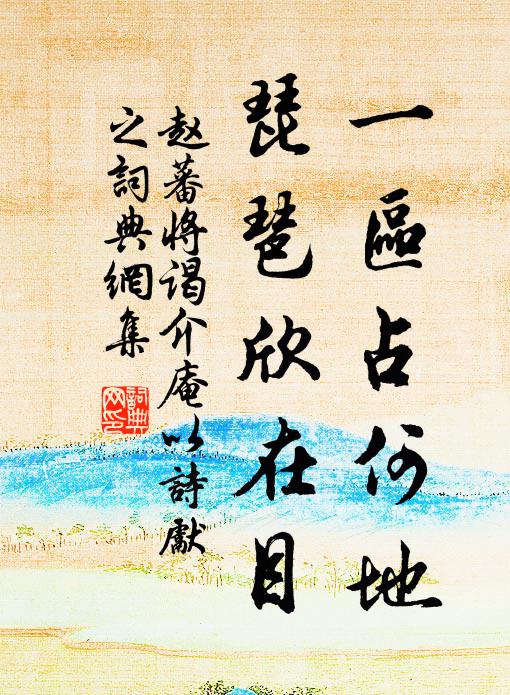 一區占何地
琵琶欣在目
赵蕃將谒介庵以詩獻
之詞典網集
詞典
网印